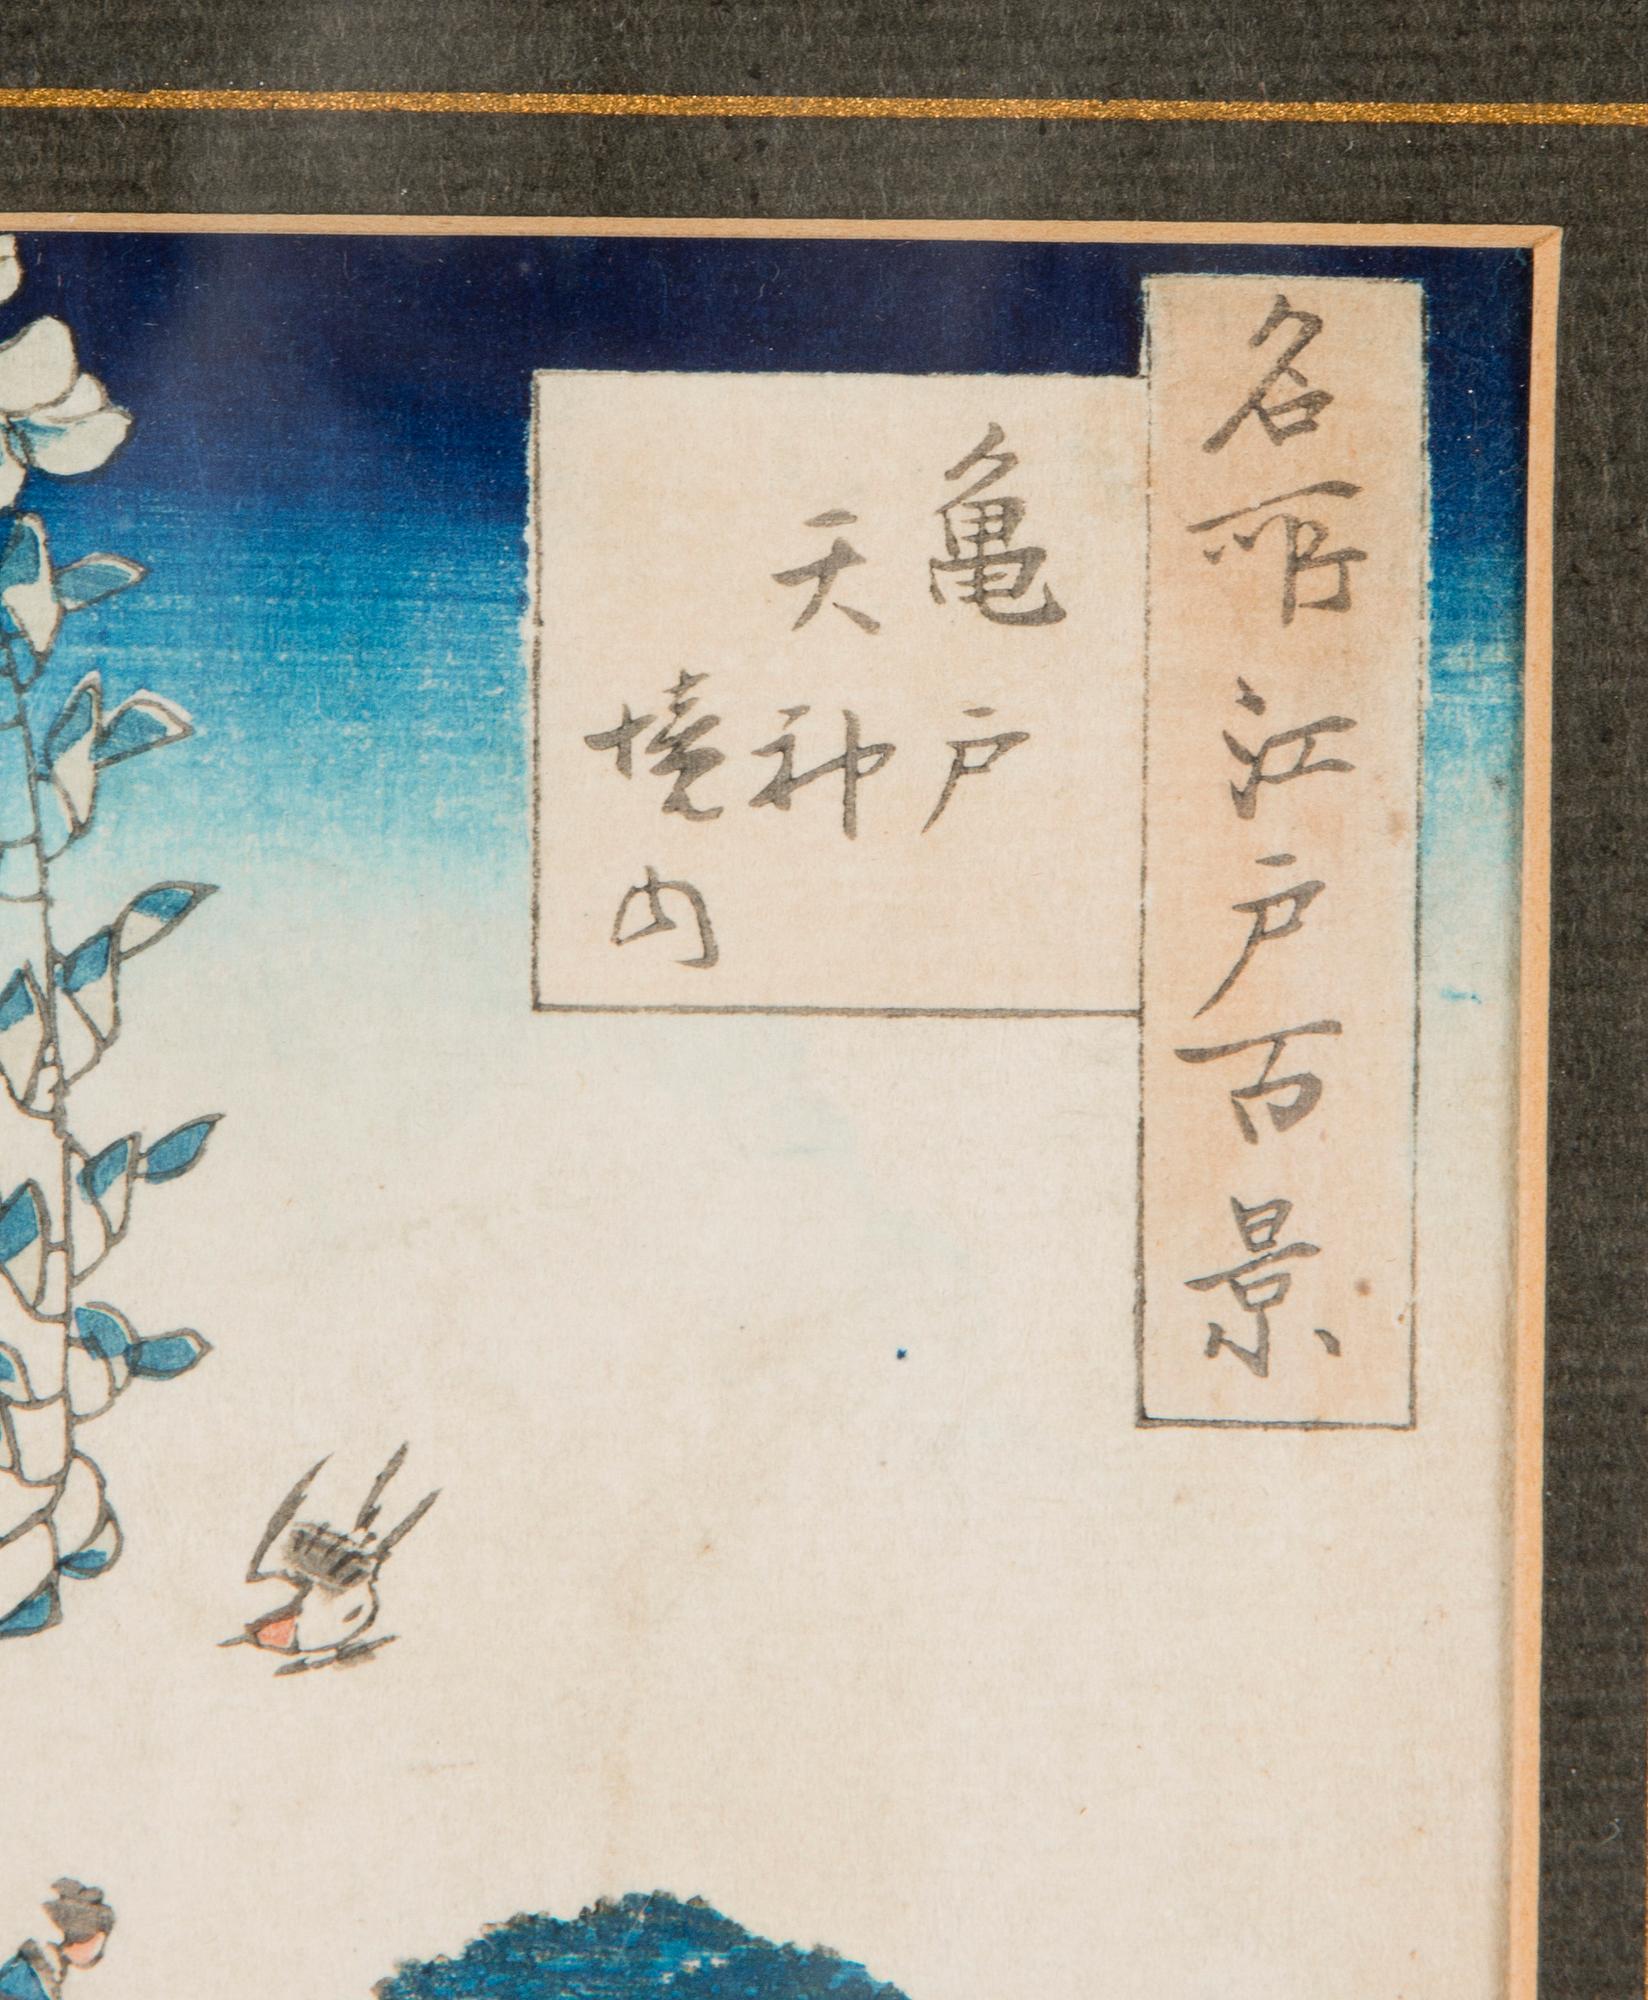 名所江戸百景
亀戸
天神
境内